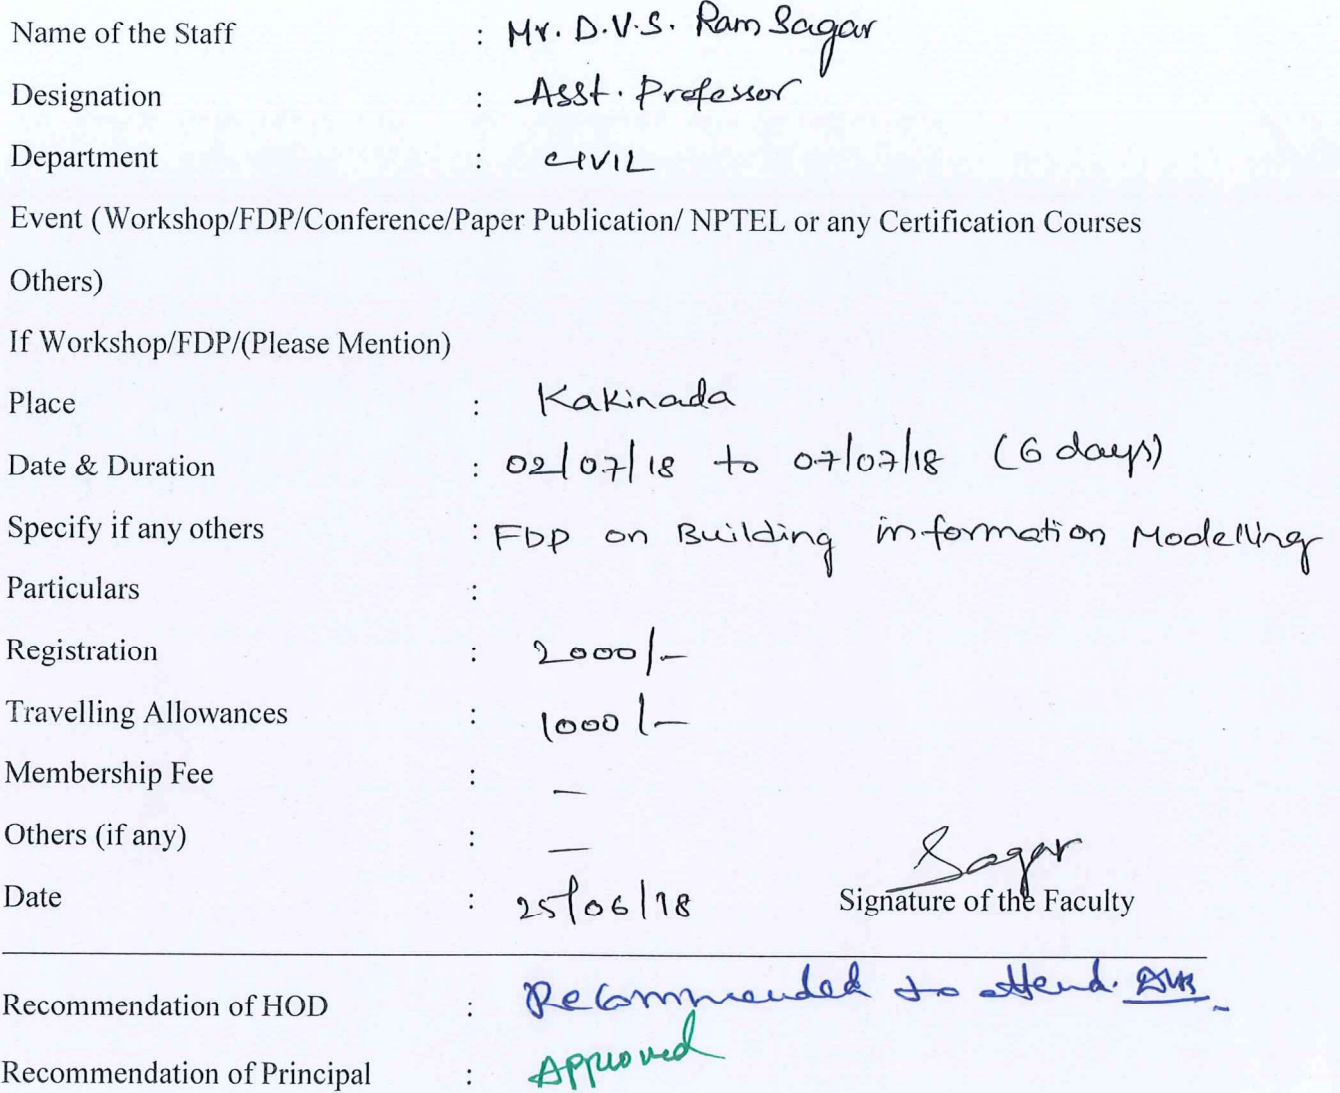 Name of the Staff : Mr. D.V.S. Ram Sagar
Designation : Asst. Professor
Department : CIVIL
Event (Workshop/FDP/Conference/Paper Publication/ NPTEL or any Certification Courses
Others)
If Workshop/FDP/(Please Mention)
Place : Kakinada
Date & Duration : 02/07/18 to 07/07/18 (6 days)
Specify if any others : FDP on Building information Modelling
Particulars :
Registration : 2000/-
Travelling Allowances : 1000/-
Membership Fee : —
Others (if any) : —
Sagar
Date : 25/06/18 Signature of the Faculty
Recommendation of HOD : Recommended to attend.
Recommendation of Principal : Approved